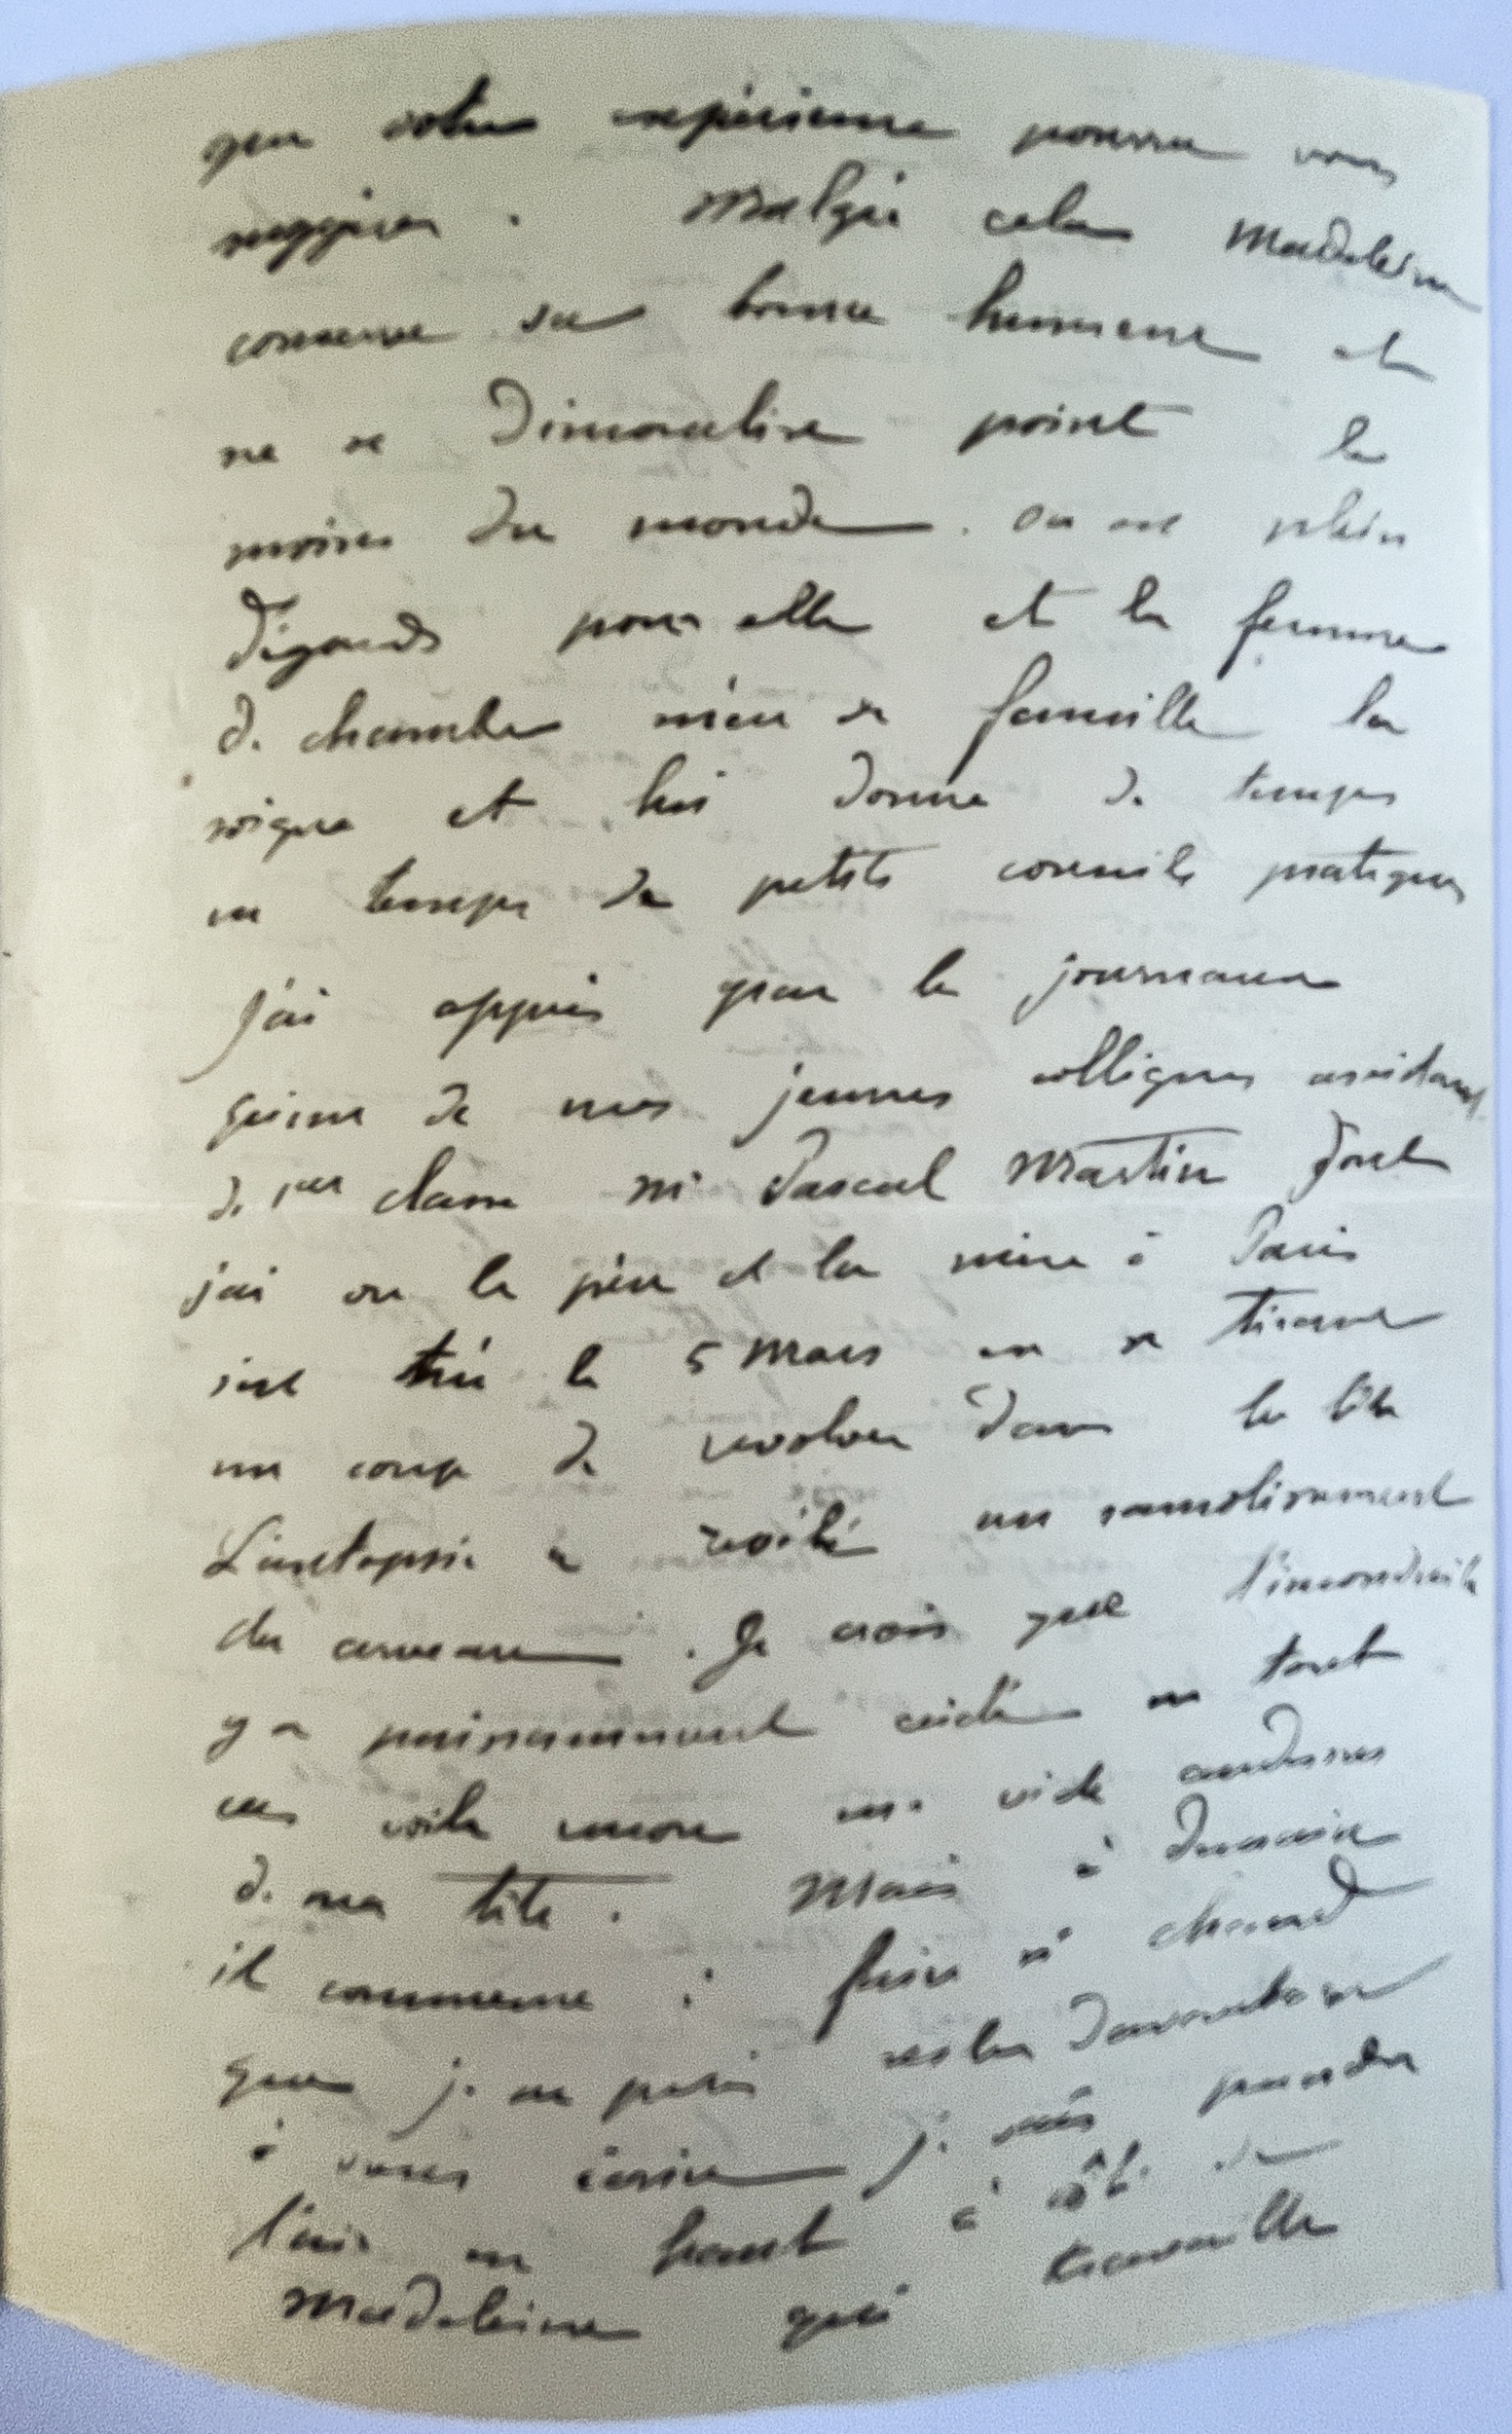 que votre expérience pourra vous
suggérer. Malgré cela Madeleine
conserve sa bonne humeur et
ne se démoralise point le
moins du monde. On est plein
d'égards pour elle et la femme
de chambre mère de famille la
soigne et lui donne de temps
en temps de petits conseils pratiques
J'ai appris par le journaux
qu'une de mes jeunes collègues
de 1ère classe Mr Pascal Martin dont
j'ai vu le père et la mère à Paris
s'est tué le 5 Mars en se tirant
un coup de revolver dans la tête
L'autopsie a révélé un ramolissement
du cerveau. Je crois que l'inconduite
y a puissamment aidé en tout
cas voila encore un vide au dessus
de ma tête. Mais à
il commence à faire si chaud
que je ne puis rester davantage
à vous écrire je vais prendre
l'air en haut à côté de
Madeleine qui travaille